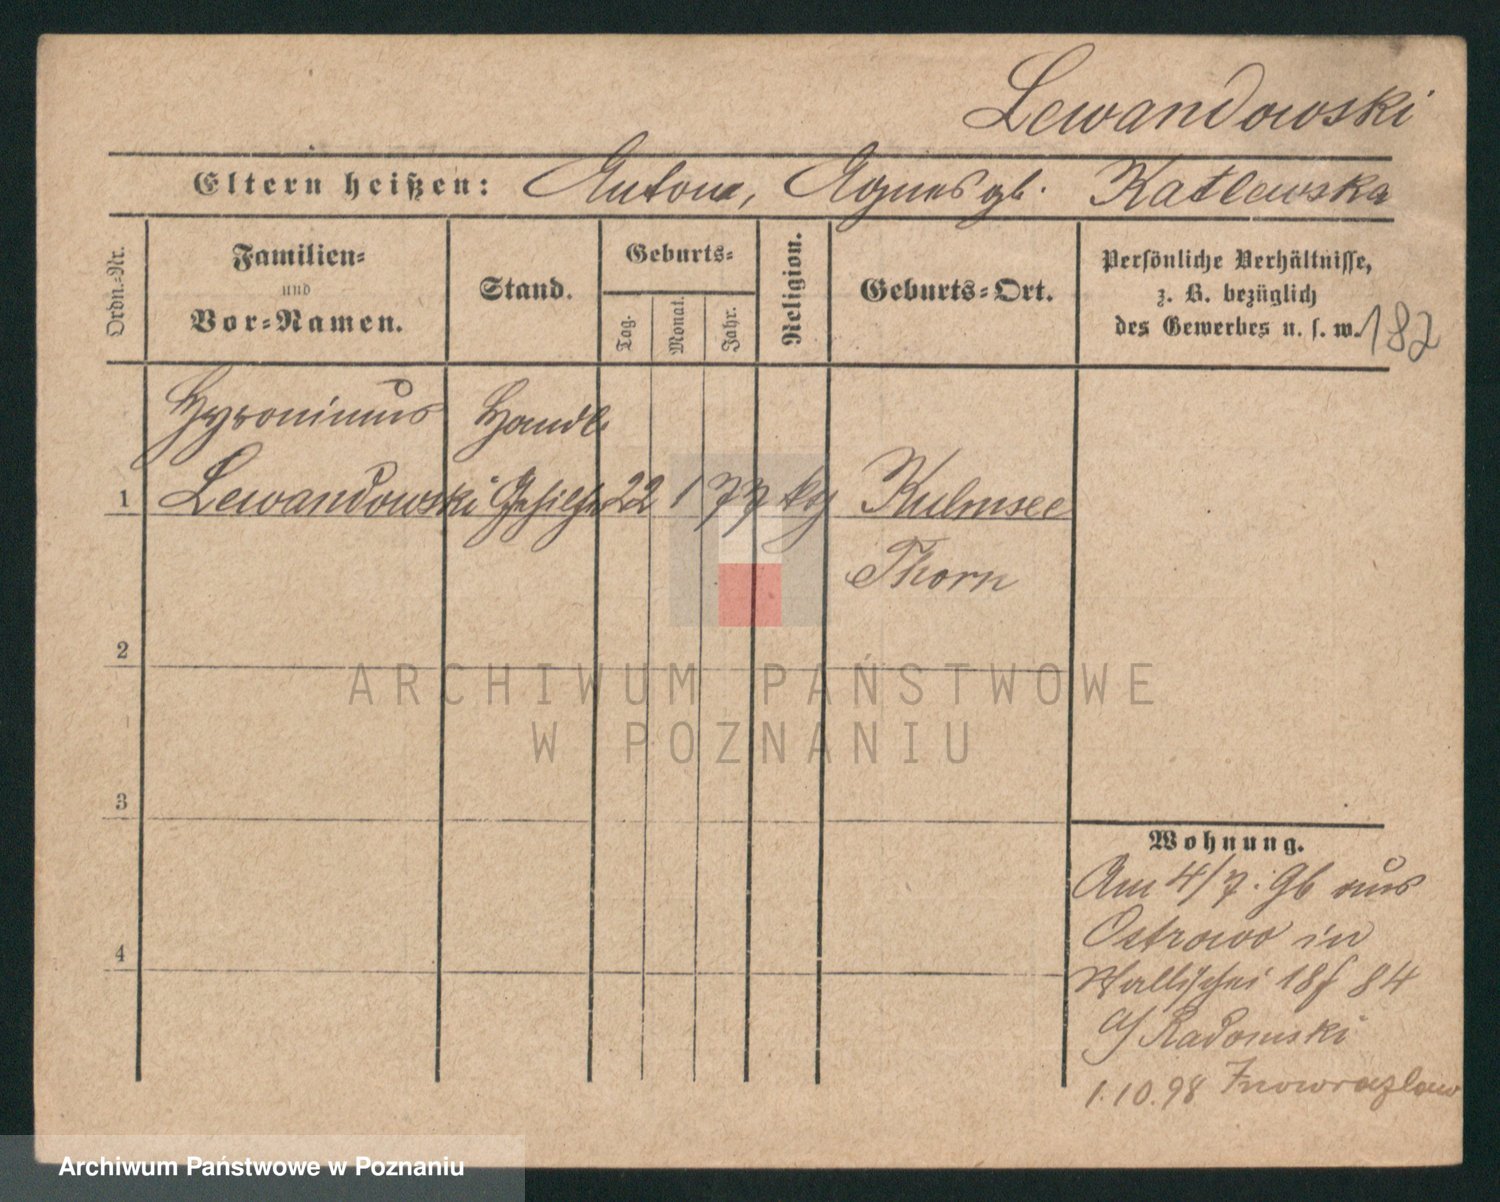 Lewandowski
Eltern heißen: Anton, Agnes gb. Katlewska
Ordn.-Nr.
Familien-
und
Vor-Namen.
Stand.
Geburts-
Tag.
Monat.
Jahr.
Religion.
Geburts-Ort.
Persönliche Verhältnisse,
z. B. bezüglich
des Gewerbes u. s. w.
187
Hyronimus Handl.
1 Lewandowski Gehilfe 22 1 77 kth Kulmsee
Thorn
2
3
4
Wohnung.
Am 4/7. 96 aus
Ostrowo in
Wallischei 18 84
b/ Radomski
1.10.98 Inowrazlaw
ARCHIWUM PAŃSTWOWE
W POZNANIU
Archiwum Państwowe w Poznaniu